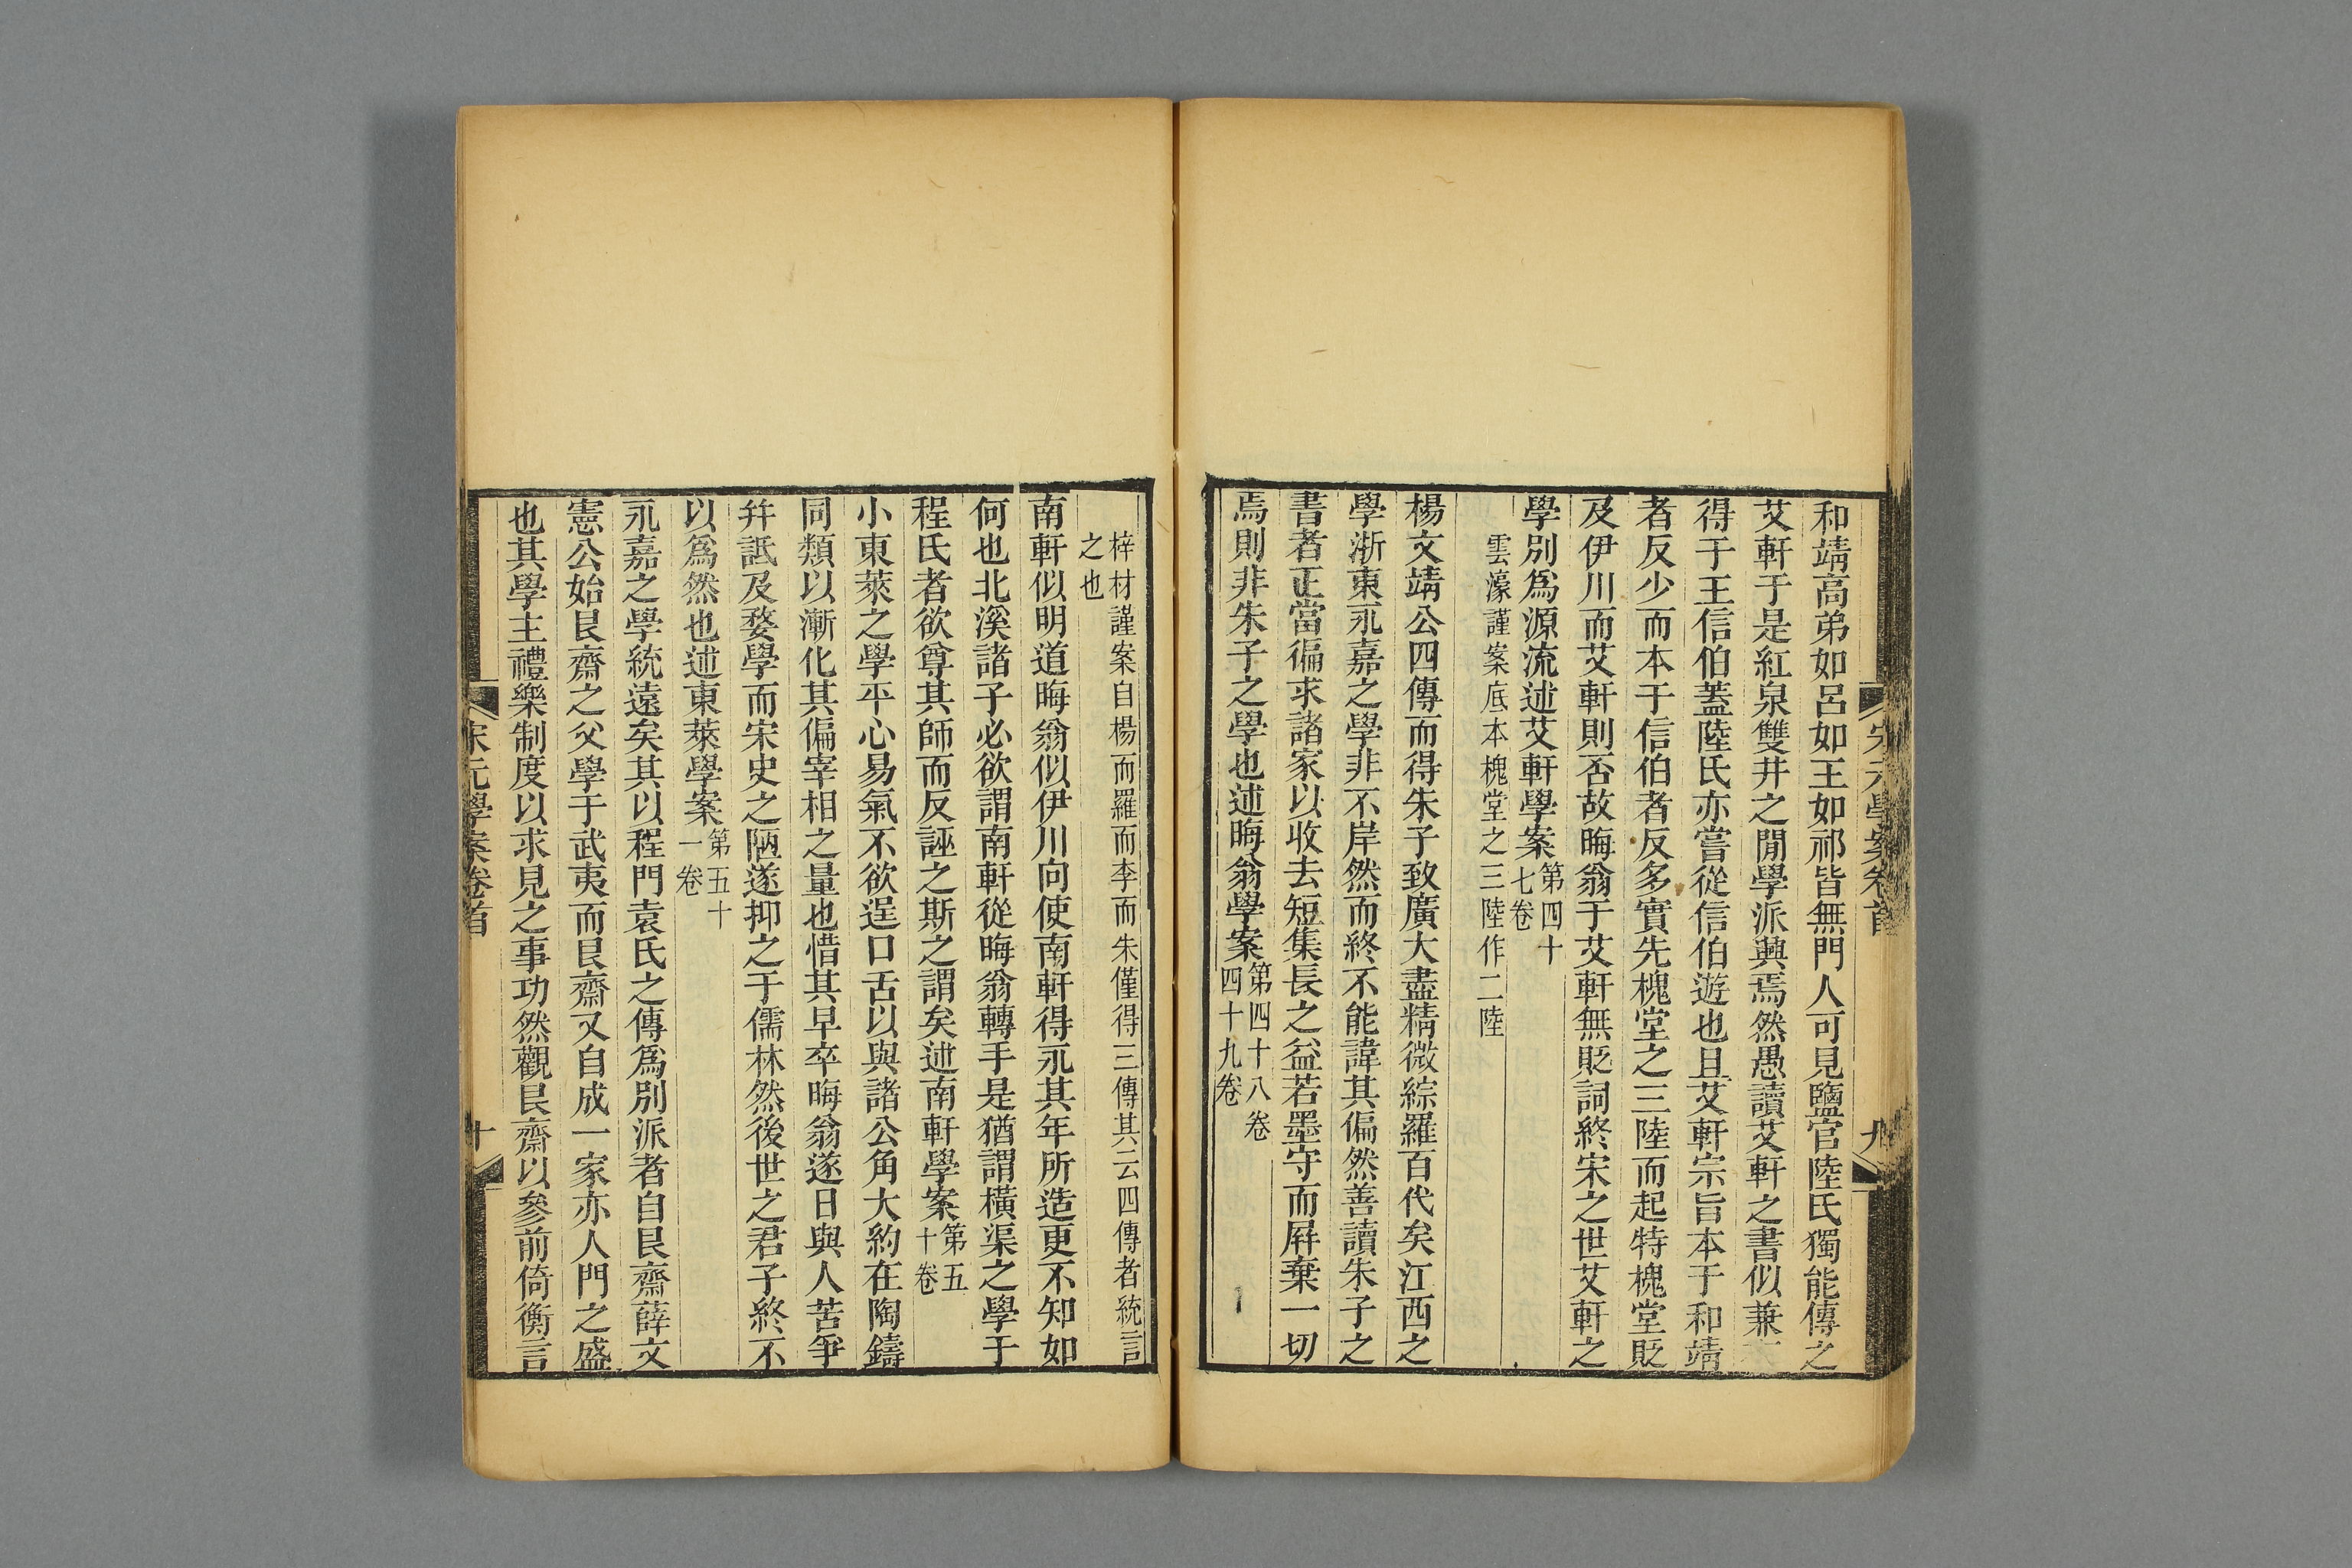 宋元學案卷首
九
和靖高弟如呂如王如祁皆無門人可見鹽官陸氏獨能傳之
艾軒于是紅泉雙井之閒學派興焉然愚讀艾軒之書似兼
得于王信伯蓋陸氏亦嘗從信伯遊也且艾軒宗旨本于和靖
者反少而本于信伯者反多實先槐堂之三陸而起特槐堂貶
及伊川而艾軒則否故晦翁于艾軒無貶詞終宋之世艾軒之
學別爲源流述艾軒學案第四十
七卷
雲濠謹案底本槐堂之三陸作二陸
楊文靖公四傳而得朱子致廣大盡精微綜羅百代矣江西之
學浙東永嘉之學非不岸然而終不能諱其偏然善讀朱子之
書者正當徧求諸家以收去短集長之益若墨守而屛棄一切
焉則非朱子之學也述晦翁學案第四十八卷
四十九卷
梓材謹案自楊而羅而李而朱僅得三傳其云四傳者統言
之也
南軒似明道晦翁似伊川向使南軒得永其年所造更不知如
何也北溪諸子必欲謂南軒從晦翁轉手是猶謂橫渠之學于
程氏者欲尊其師而反誣之斯之謂矣述南軒學案第五
十卷
小東萊之學平心易氣不欲逞口舌以與諸公角大約在陶鑄
同類以漸化其偏宰相之量也惜其早卒晦翁遂日與人苦爭
幷詆及婺學而宋史之陋遂抑之于儒林然後世之君子終不
以爲然也述東萊學案第五十
一卷
永嘉之學統遠矣其以程門袁氏之傳爲別派者自艮齋薛文
憲公始艮齋之父學于武夷而艮齋又自成一家亦人門之盛
也其學主禮樂制度以求見之事功然觀艮齋以參前倚衡言
宋元學案卷首
十